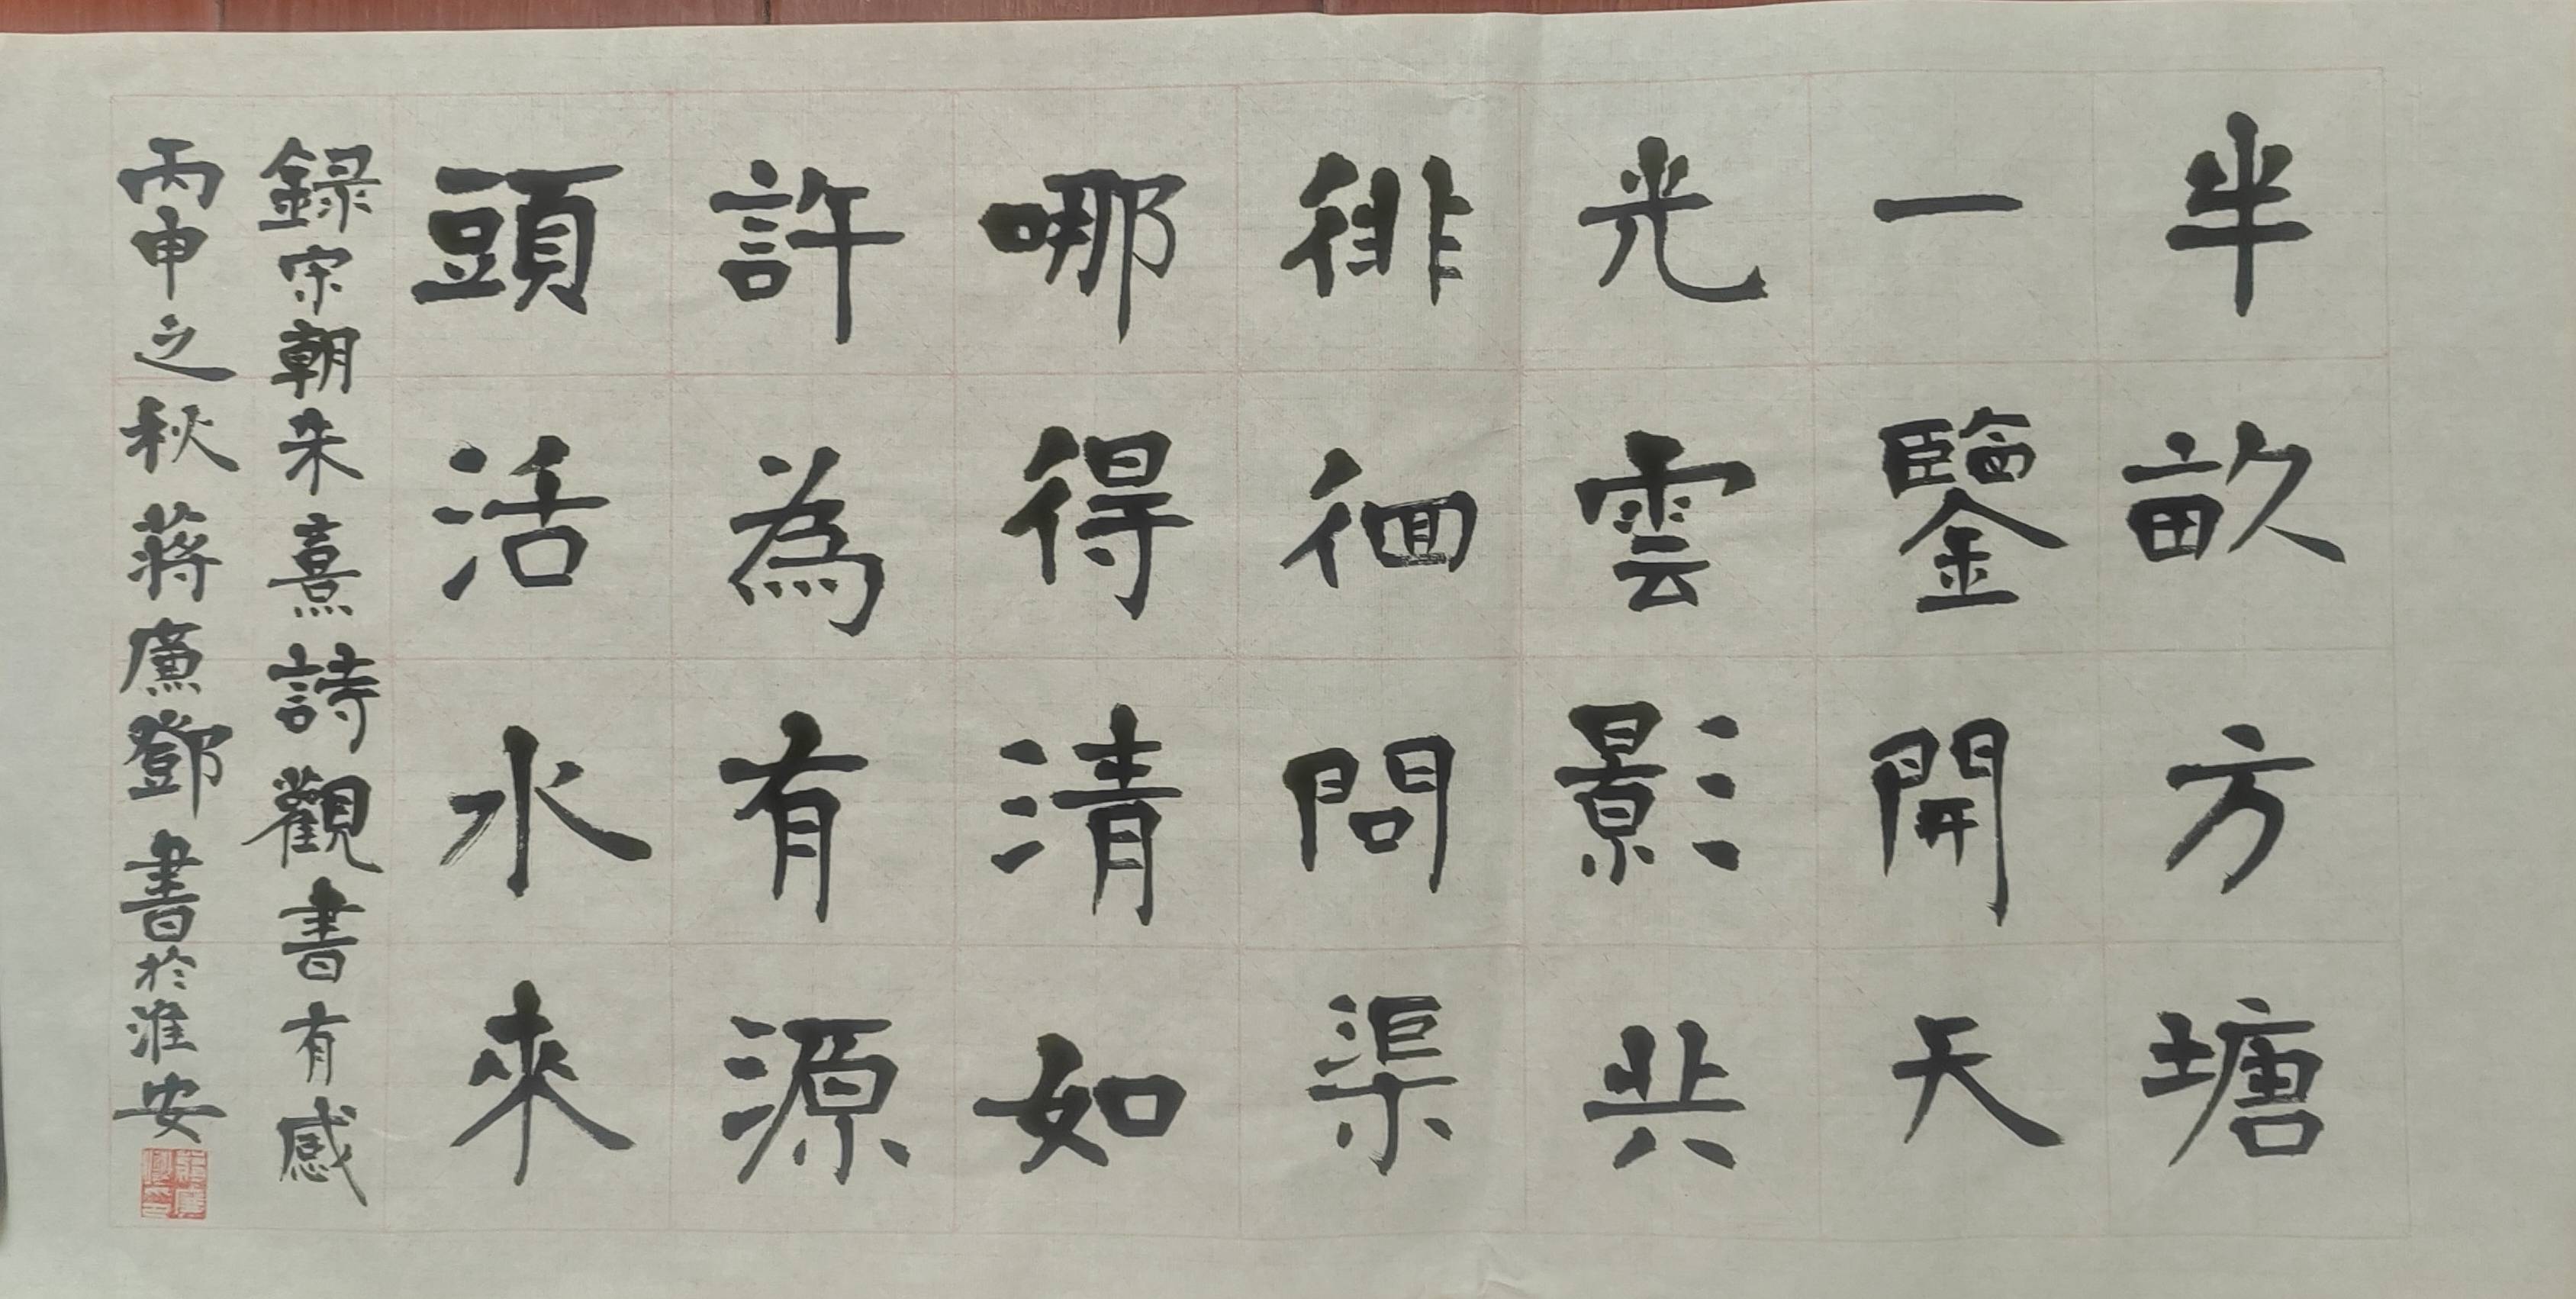 半畝方塘
一鑒開天
光雲影共
徘徊問渠
哪得清如
許為有源
頭活水來
錄宋朝朱熹詩觀書有感
丙申之秋蔣廉鄧書於淮安